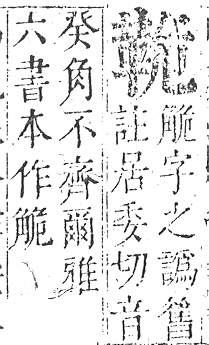 觤字之譌舊
註居委切音
癸角不齊爾雅
六書本作觤